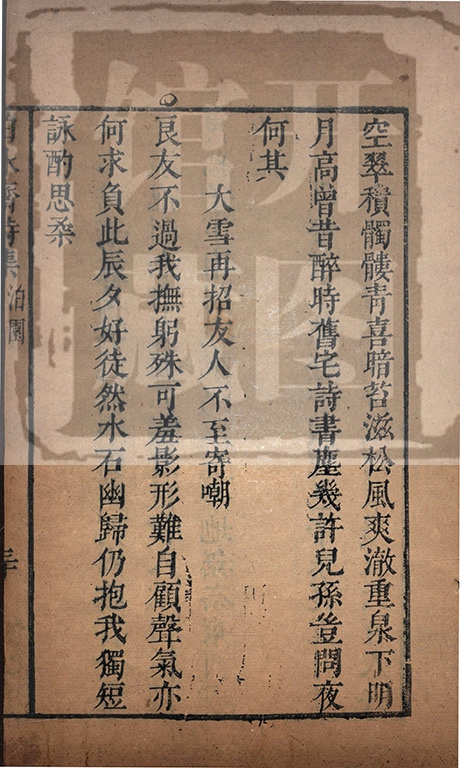 空翠積髑髏青喜暗苔滋松風爽澈重泉下明
月高曾昔醉時舊宅詩書塵幾許兒孫登問夜
何其
大雪再招友人不至寄嘲
良友不過我撫躬殊可羞影形難自顧聲氣亦
何求負此辰夕好徒然水石幽歸仍抱我獨短
詠酌思柔
詩集 泊園